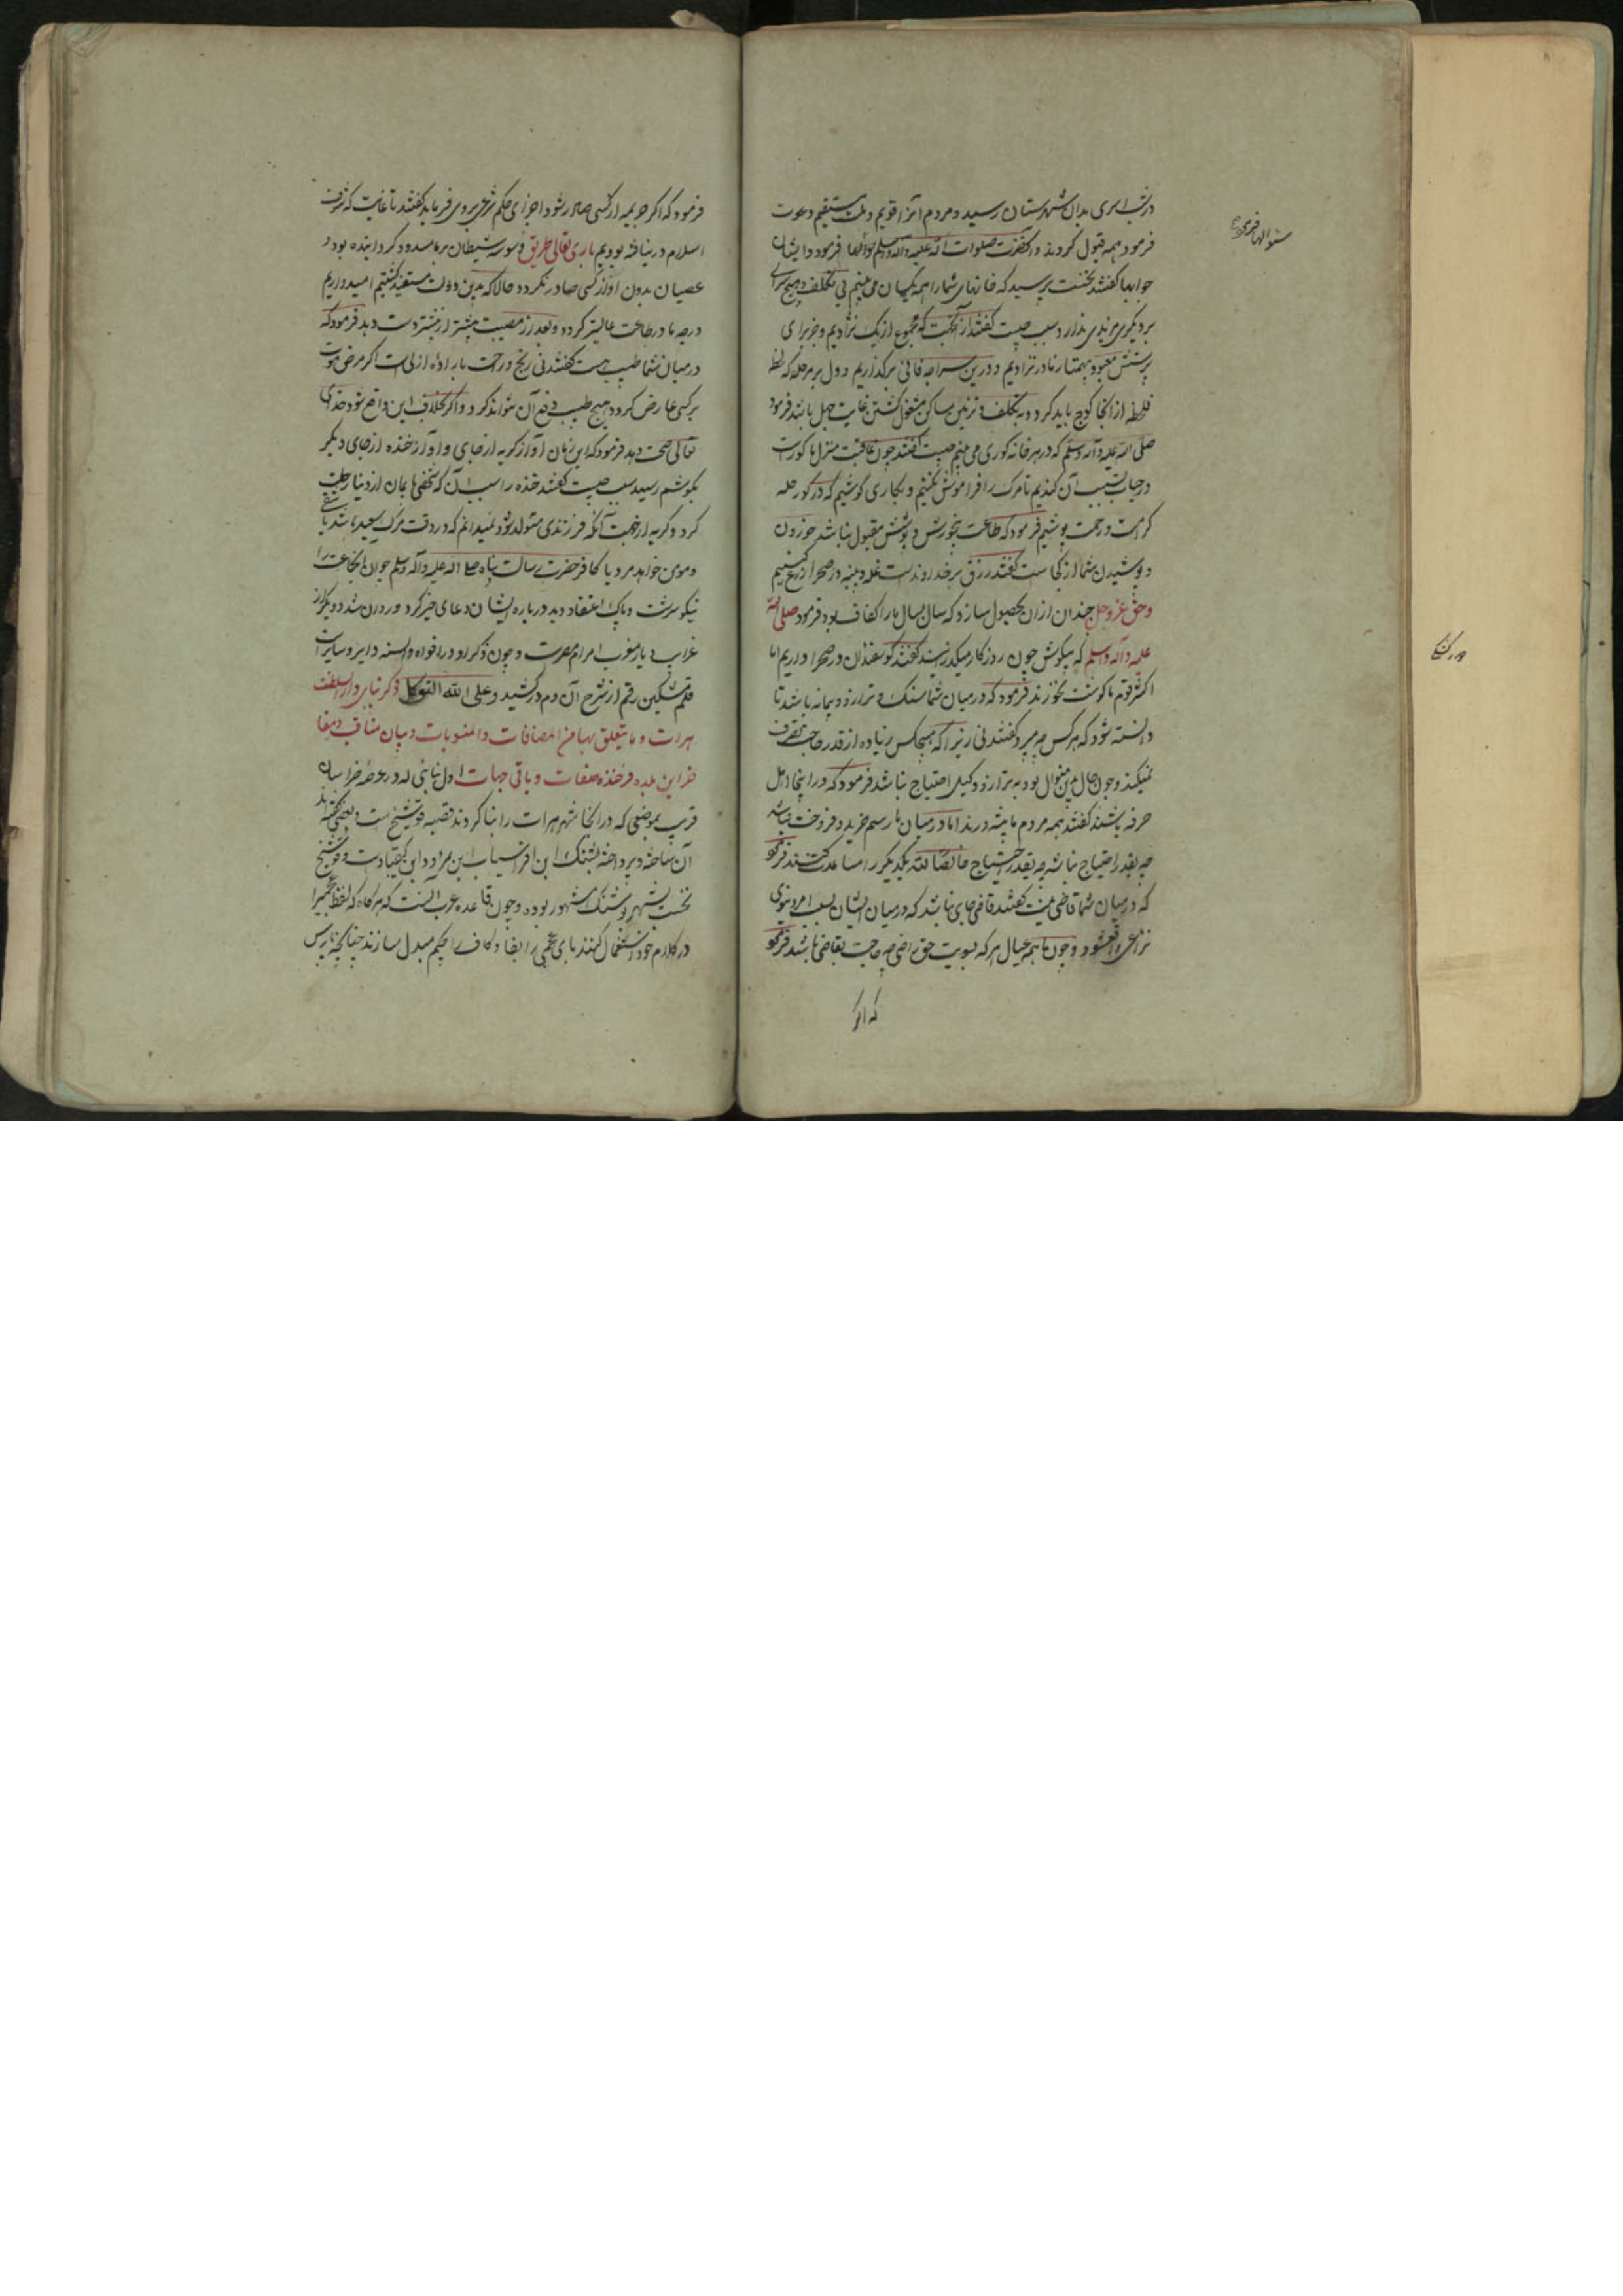 در شب اسری بدان شهرستان رسید و مردم آنرا قویم و ملت مستقیم دعوت
فرمود همه قبول کردند و آنحضرت صلوات الله علیه وآله وسلم سؤالها فرمود و ایشان
جوابها گفتند نخست پرسید که خانهای شما را همه یکسان می بینم بی تکلف و هیچ سرای
بر دیگری مزیدی ندارد سبب چیست گفتند از آنجهت که مجموع از یک نژادیم و جز برای
پرستش معبود بیهمتا از مادر نزادیم و درین سراچه فانی برگذاریم و دل بر مرحله که لحظه
فلحظه از آنجا کوچ باید کرد و به تکلف و تزئین مساکن مشغول گشتن غایت جهل باشد فرمود
صلی الله علیه وآله وسلم که در هر خانه گوری می بینم چیست گفتند چون عاقبت منزل ما گورست
در حیات ترتیب آن کنیم تا مرک را فراموش نکنیم و بکاری کوشیم که در گور حله
کرامت و رحمت پوشیم فرمود که طاعت بیخورش و پوشش مقبول نباشد خوردن
و پوشیدن شما از کجاست گفتند رزق بر خداوندست غله و پنبه در صحرا زرع کنیم
و حق عز وجل چندان ازان بحصول سازد که سال بسال ما را کفاف بود فرمود صلی الله
علیه وآله وسلم که بیگوش چون روزگار میگذرانید گفتند گوسفندان در صحرا داریم اما
اکثر قوم ما گوشت نخورند فرمود که در میان شما سنک و ترازو و پیمانه باشد تا
دانسته شود که هرکس چه میبرد گفتند نی زیرا که هیچکس زیاده از قدر حاجت تصرف
نمیکند و چون حال بدین منوال بود به ترازو و کیل احتیاج نباشد فرمود که در اینجا اهل
حرفه باشند گفتند همه مردم ما پیشه ورند اما در میان ما رسم خرید و فروخت نباشد
چه بقدر احتیاج خالصا لله یکدیگر را مساعدت کنند فرمود
که در میان شما قاضی هست گفتند قاضی جای باشد که در میان ایشان بسبب امر دنیوی
نزاعی واقع شود و چون ما همه عیال هرکه بسویت حق راضی چه حاجت بقاضی باشد فرمود
که اگر
سؤالها فرمود
فرمود که اگر جریمه از کسی صادر شود اجرای حکم شرعی بر وی فرماید گفتند تا غایت که شرف
اسلام در نیافته بودیم باری تعالی طریق وسوسه شیطان بر ما مسدود گردانیده بود و
عصیان بدون او از کسی صادر نگردد حالا که بدین دولت مستفید گشتیم امیدواریم
درجه ما در طاعت عالیتر گردد و بعد از مصیبت بیشتر از پیشتر دست دهد فرمود که
در میان شما طبیب هست گفتند نی رنج و راحت باراده ازلی است اگر مرض موت
بر کسی عارض گردد هیچ طبیب دفع آن نتواند کرد و اگر بخلاف این واقع شود خدای
تعالی صحت دهد فرمود که این زمان آواز گریه از جای و آواز خنده از جای دیگر
بگوشم رسید سبب چیست گفتند خنده را سبب آن که شخصی با ایمان از دنیا رحلت
کرد و گریه از جهت آنکه فرزندی متولد شود نمیدانم که در وقت مرک سعید باشد یا شقی
و مومن خواهد مرد یا کافر حضرت رسالت پناه صلی الله علیه وآله وسلم چون آنجماعت را
نیکو سرشت و پاک اعتقاد دید درباره ایشان دعای خیر کرد و روان شد و دیگر از
غرایب دیار مغرب اهرام مصرست و چون ذکر او در افواه والسنه دایر و سایر است
قلم مشکین رقم از شرح آن دم درکشید و علی الله التوکل ذکر بنای دارالسلطنت
هرات و ما یتعلق بها من المضافات والمنسوبات و بیان مناقب و مفا
خر این بلده فرخنده صفات و باقی جهات اول بنایی که در عرصه خراسان
قریب بموضعی که در آنجا شهر هرات را بنا کردند قصبه فوشنج است و بعضی گفته اند
آن ساخته و پرداخته پشنک ابن افراسیاب ابن کیقبادست و فوشنج
نخست بشهر پوشنک مشهور بوده و چون قاعده عرب آنست که هرگاه که لفظ عجمی را
در کلام خود استعمال کنند بای عجمی را بفا و کاف را بجیم مبدل سازند چنانچه پارس